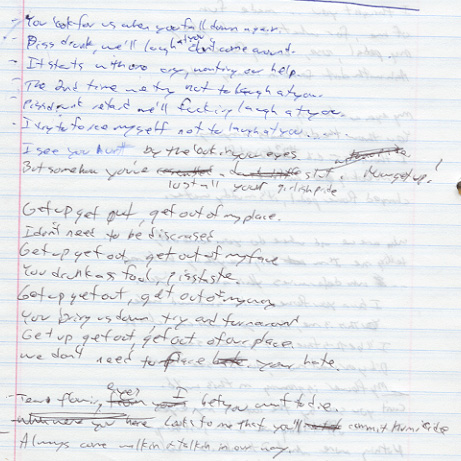 - You look for us when you fall down again.
Piss drunk, we'll laugh at you and come around.
- It starts with one cry, wanting our help.
- The 2nd time we try not to laugh at you.
- Piss drunk retard we'll fucking laugh at you.
- I try to force myself not to laugh at you.
I see you hurt by the look in your eyes.
But somehow you've slut. Hurry get up!
lost all your girlish pride
Get up get out, get out of my place.
I don't need to be discrased
Get up get out, get out of my face
You drunk as fool, piss taste.
Get up get out, get out of my way
You bring us down, try and turn around
Get up get out, get out of our place.
we don't need to place your hate.
- Tears flowing, eyes I bet you want to die.
Looks to me that you'll commit homicide
Always come walkin & talkin in our way.